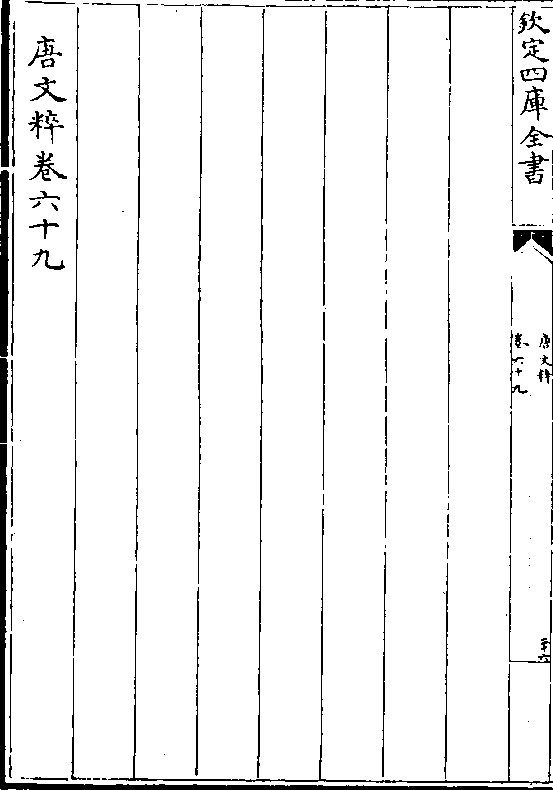 欽定四庫全書
唐文粹
卷六十九
二十六
唐文粹卷六十九